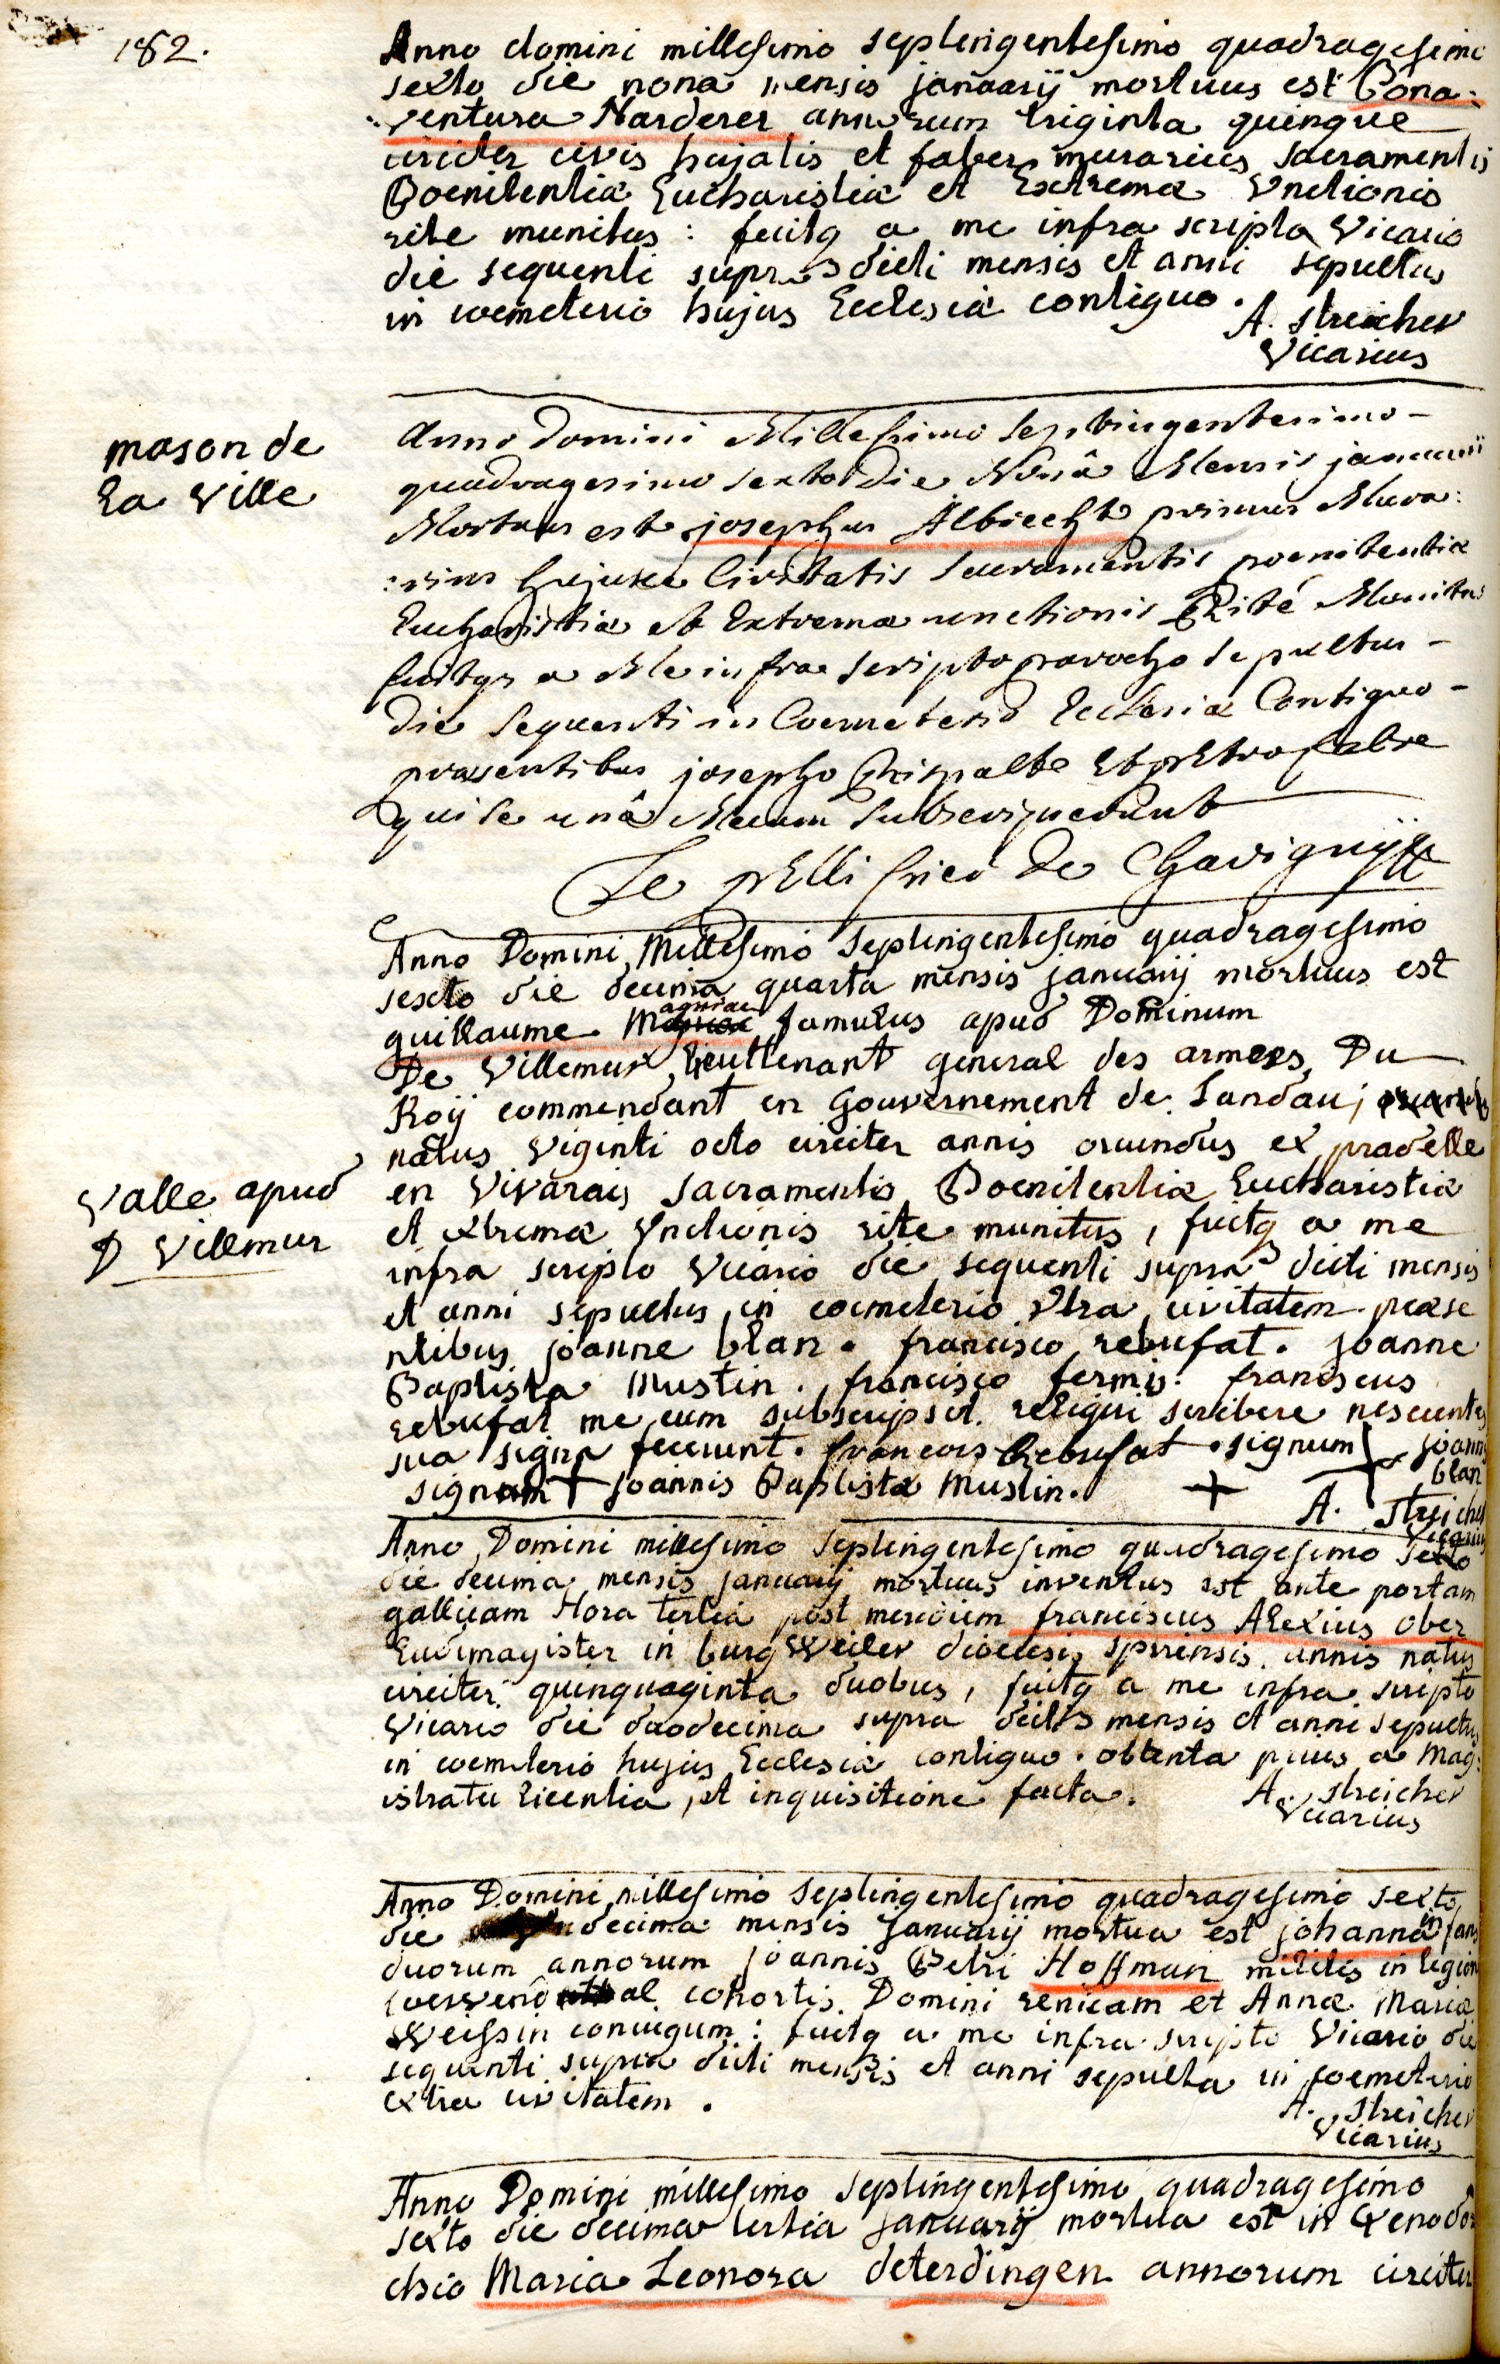 182.
Anno domini millesimo septingentesimo quadragesimo
sexto die nona mensis januarij mortuus est Bona:
ventura Narderer annorum triginta quinque
circiter civis hujatis et faber murarius, sacramentis
Poenitentiæ Eucharistiæ et Extremæ Vnctionis
rite munitus: fuitq a me infra scripto Vicario
die sequenti supra dicti mensis et anni sepultus
in coemeterio hujus Ecclesiæ contiguo.
A. Streicher
Vicarius
mason de
La Ville
Anno Domini Millesimo Septingentesimo-
quadragesimo sexto die Nonâ Mensis januarii
Mortuus est josephus Albrecht primus Mura:
:rius hujusce Civitatis Sacramentis poenitentiæ
Eucharistiæ et Extremæ unctionis Rité Munitus
fuitqz a Me infra scripto parocho sepultus-
die sequenti in Coemeterio Ecclesiæ Contiguo-
præsentibus josepho et petro fabre
qui se unâ Mecum Subscripserunt
Le pelli de Chavigny
Anno Domini Millesimo Septingentesimo quadragesimo
sexto die decima quarta mensis januarij mortuus est
guillaume Magniau famulus apud Dominum
De Villemur Lieuttenant general des armees Du
Roij commendant en Gouvernement de Landau,
natus viginti octo circiter annis oriundus ex pradelle
Valle apud
D Villemur
en Vivarais Sacramentis Poenitentiæ Eucharistiæ
et extremæ Vnctionis rite munitus, fuitq a me
infra scripto Vicario die sequenti supra dicti mensis
et anni sepultus in coemeterio Extra civitatem præse
ntibus joanne blan. francisco rebufat. joanne
Baptista Mustin. francisco fermis. franciscus
rebufat me cum subscripsit. religui scribere nescientes
sua signa fecerunt. francois Rebufat. signum + joannis
blan
signum + joannis Baptistæ Mustin. +
A. Streicher
Vicarius
Anno Domini millesimo septingentesimo quadragesimo sexto
die decima mensis januarij mortuus inventus est ante portam
gallicam Hora tertia post meridiem franciscus Alexius Ober
Ludimagister in burgweiler dioecesis spirensis. annis natus
circiter quinquaginta duobus, fuitq a me infra scripto
Vicario die duodecima supra dicti mensis et anni sepultus
in coemeterio hujus Ecclesiæ contiguo. obtenta prius a Mag:
istratu Licentia, et inquisitione facta.
A. Streicher
Vicarius
Anno Domini millesimo Septingentesimo quadragesimo sexto
die undecima mensis Januarij mortua est johanna infans
duorum annorum joannis Petri Hoffman militis in legion
Loewendal cohortis Domini renicam et Annæ Mariæ
Weissin conuigum: fuitq a me infra scripto Vicario die
sequenti supra dicti mensis et anni sepulta in coemeterio
extra civitatem.
A. Streicher
Vicarius
Anno Domini millesimo Septingentesimo quadragesimo
sexto die decima tertia Januarij mortua est in Xenodo
chio Maria Leonora deterdingen annorum circiter